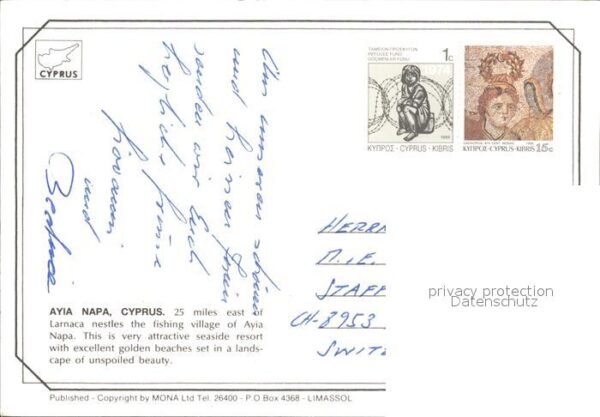 CYPRUS
Aus unseren schönen
und
senden wir Euch
herzliche Grüsse
Giovanni
und
ΤΑΜΕΙΟΝ ΠΡΟΣΦΥΓΩΝ
REFUGEE FUND
GÖÇMENLER FONU
1c
ΚΥΠΡΟΣ - CYPRUS - KIBRIS
ΚΥΠΡΟΣ-CYPRUS-KIBRIS 15c
HERRN
M. + E.
STAFF
CH-8953
SWIT
privacy protection
Datenschutz
AYIA NAPA, CYPRUS. 25 miles east of
Larnaca nestles the fishing village of Ayia
Napa. This is very attractive seaside resort
with excellent golden beaches set in a lands-
cape of unspoiled beauty.
Published - Copyright by MONA Ltd Tel. 26400 - P.O Box 4368 - LIMASSOL